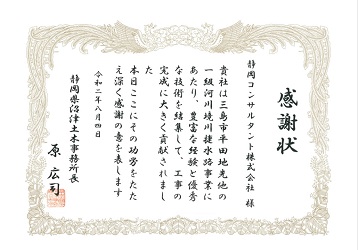 感謝状
静岡コンサルタント株式会社 様
貴社は三島市平田地先他の
一級河川境川捷水路事業に
あたり、豊富な経験と優秀
な技術を結集して、工事の
完成に大きく貢献されまし
た
本日ここにその功労をたた
え深く感謝の意を表します
令和二年八月四日
静岡県沼津土木事務所長
原 広司